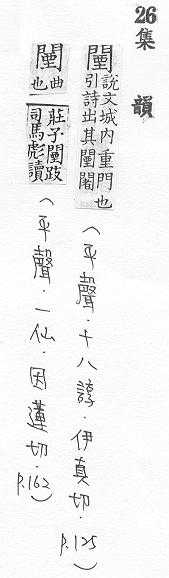 26集 韻
闉說文城内重門也引詩出其闉闍(平聲．十八諄．伊真切．P.125)
闉曲也莊子闉跂司馬彪讀(平聲．二仙．因蓮切．P.162)